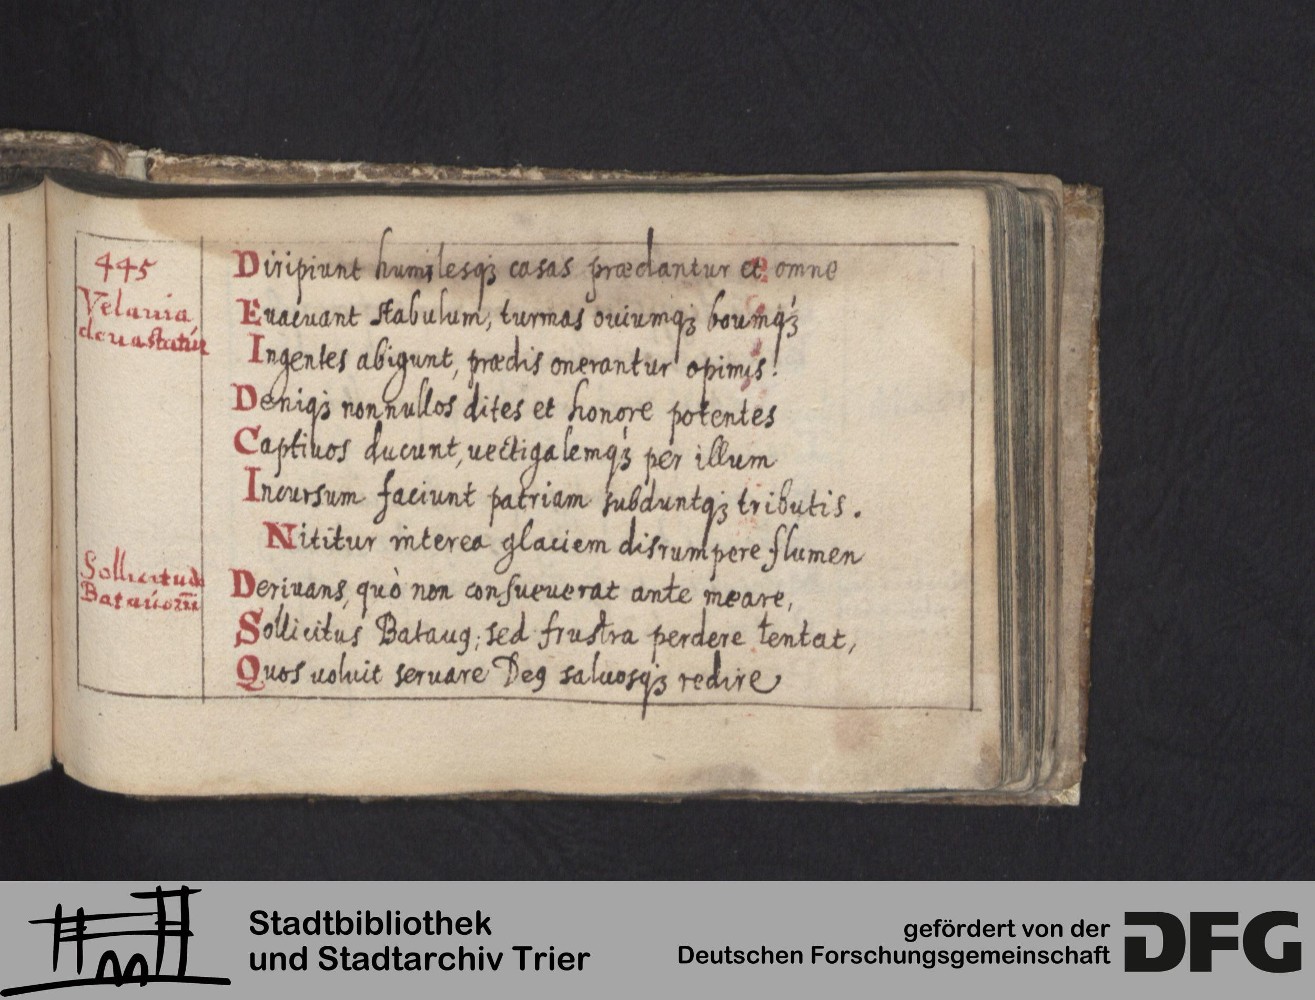 445
Velauia
deuastatur
Diripiunt humilesqꝫ casas prædantur et omne
Euacuant stabulum, turmas ouiumqꝫ boumqꝫ́
Ingentes abigunt, prædis onerantur opimis:
Deniqꝫ nonnullos dites et honore potentes
Captiuos ducunt, uectigalemqꝫ́ per illum
Incursum faciunt patriam subduntqꝫ tributis.
Nititur interea glaciem disrumpere flumen
Sollicitudo
Batauorū
Deriuans, quò non consueuerat ante meare,
Sollicitus Batauꝯ; sed frustra perdere tentat,
Quos uoluit seruare Deꝯ saluosqꝫ redire
Stadtbibliothek
und Stadtarchiv Trier
gefördert von der
Deutschen Forschungsgemeinschaft
DFG